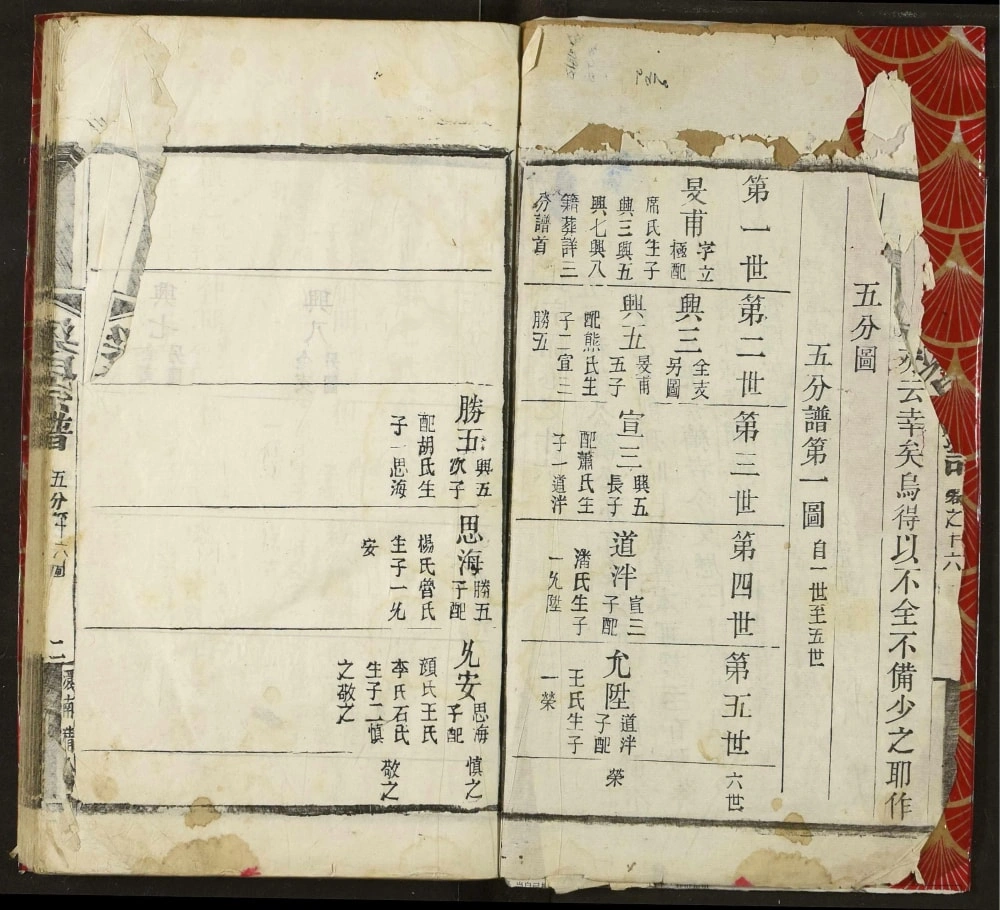 云幸矣烏得以不全不備少之耶作
五分圖
五分譜第一圖 自一世至五世
第一世
第二世
第三世
第四世
第五世
六世
旻甫
字立
極配
席氏生子
興三興五
興七興八
籍葬詳三
分譜首
興三
全支
另圖
興五
旻甫
五子
配熊氏生
子二宣三
勝五
宣三
興五
長子
配蕭氏生
子一道泮
道泮
宣三
子配
潘氏生子
一允陞
允陞
道泮
子配
王氏生子
一榮
榮
勝五
興五
次子
配胡氏生
子一思海
思海
勝五
子配
楊氏曾氏
生子一允
安
允安
思海
子配
顔氏王氏
李氏石氏
生子二慎
之敬之
慎之
敬之
卷之十六
二